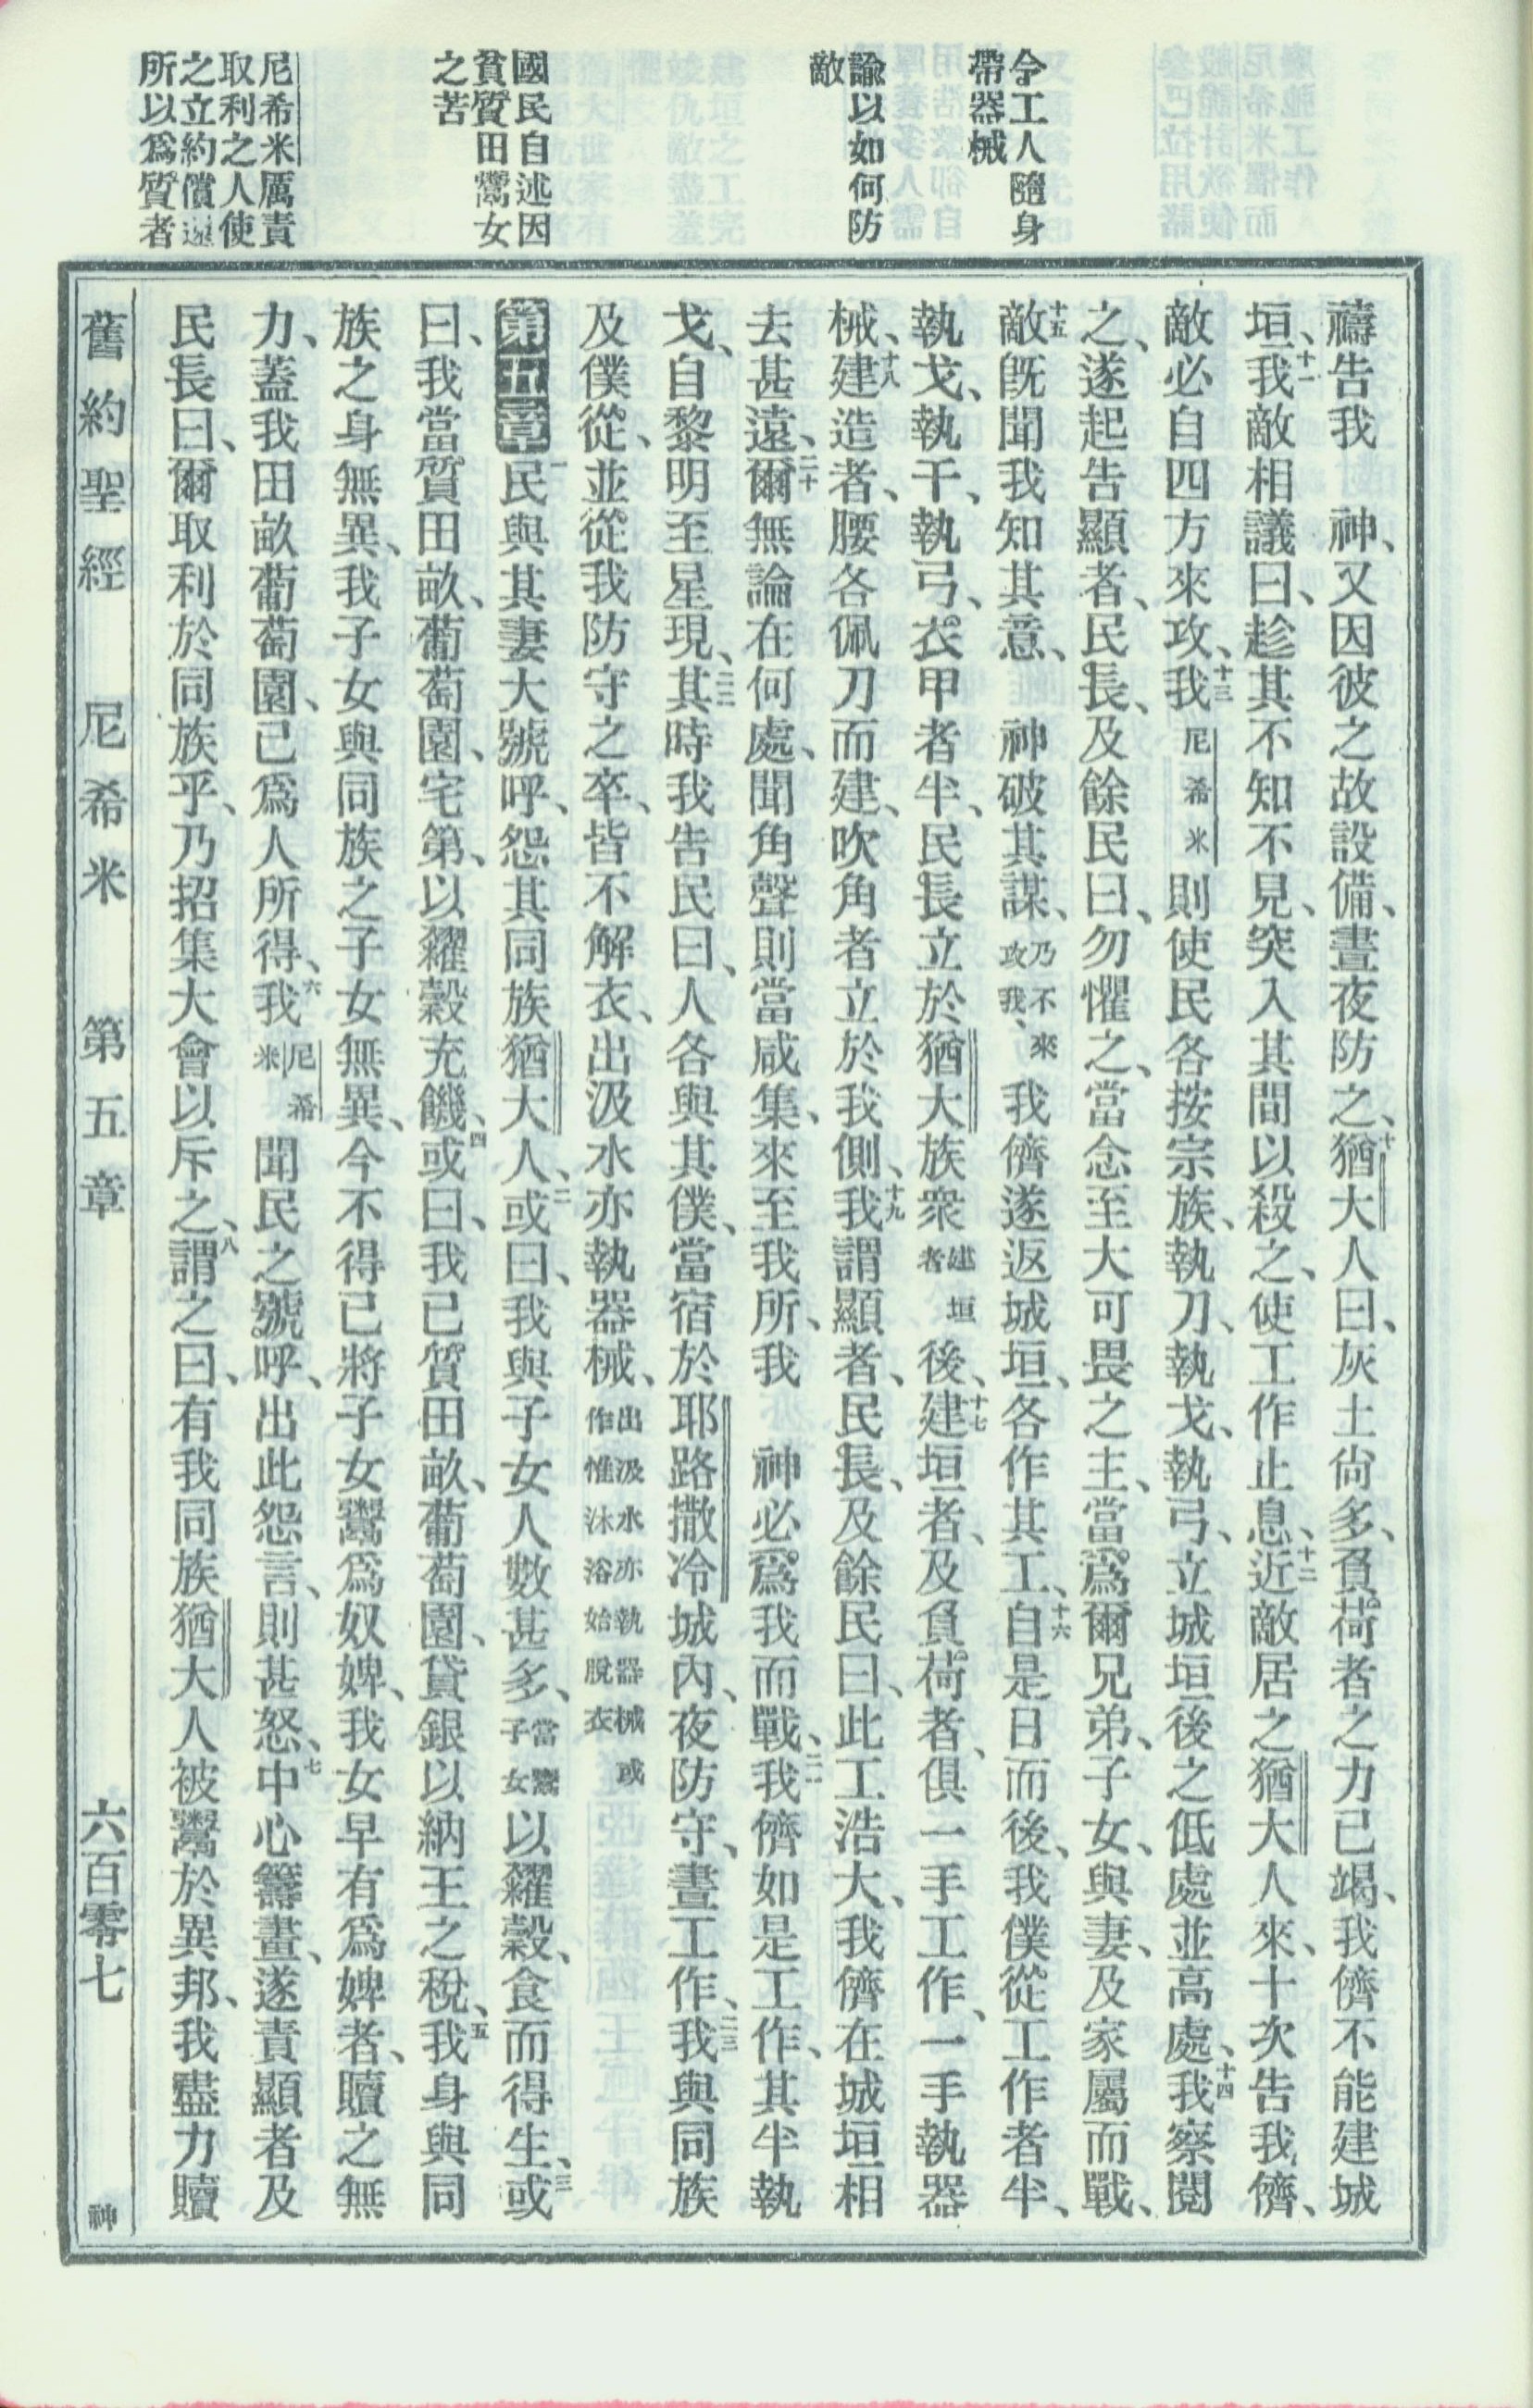 令工人隨身
帶器械
諭以如何防
敵
國民自述因
貧質田鬻女
之苦
尼希米厲責
取利之人使
之立約償還
所以爲質者
禱告我　神、又因彼之故設備、晝夜防之、十猶大人曰、灰土尙多、負荷者之力已竭、我儕不能建城
垣、十一我敵相議曰、趁其不知不見、突入其間以殺之、使工作止息、十二近敵居之猶大人來、十次告我儕、
敵必自四方來攻、十三我尼希米則使民各按宗族、執刀、執戈、執弓、立城垣後之低處並高處、十四我察閱
之、遂起告顯者、民長、及餘民曰、勿懼之、當念至大可畏之主、當爲爾兄弟、子女、與妻、及家屬而戰、
十五敵旣聞我知其意、　神破其謀、乃不來攻我、我儕遂返城垣、各作其工、十六自是日而後、我僕從工作者半、
執戈、執干、執弓、衣甲者半、民長立於猶大族衆建垣者後、十七建垣者、及負荷者、俱一手工作、一手執器
械、十八建造者、腰各佩刀而建、吹角者立於我側、十九我謂顯者、民長、及餘民曰、此工浩大、我儕在城垣相
去甚遠、二十爾無論在何處、聞角聲則當咸集、來至我所、我　神必爲我而戰、二一我儕如是工作、其半執
戈、自黎明至星現、二二其時我告民曰、人各與其僕、當宿於耶路撒冷城內、夜防守、晝工作、二三我與同族
及僕從、並從我防守之卒、皆不解衣、出汲水亦執器械、出汲水亦執器械或作惟沐浴始脫衣
第五章　一民與其妻大號呼、怨其同族猶大人、二或曰、我與子女人數甚多、當鬻子女以糴穀、食而得生、三或
曰、我當質田畝、葡萄園、宅第、以糴穀充饑、四或曰、我已質田畝、葡萄園、貸銀以納王之稅、五我身與同
族之身無異、我子女與同族之子女無異、今不得已將子女鬻爲奴婢、我女早有爲婢者、贖之無
力、蓋我田畝葡萄園、已爲人所得、六我尼希米聞民之號呼、出此怨言、則甚怒、七中心籌畫、遂責顯者及
民長曰、爾取利於同族乎、乃招集大會以斥之、八謂之曰、有我同族猶大人被鬻於異邦、我盡力贖
舊約聖經　尼希米　第五章　六百零七　神